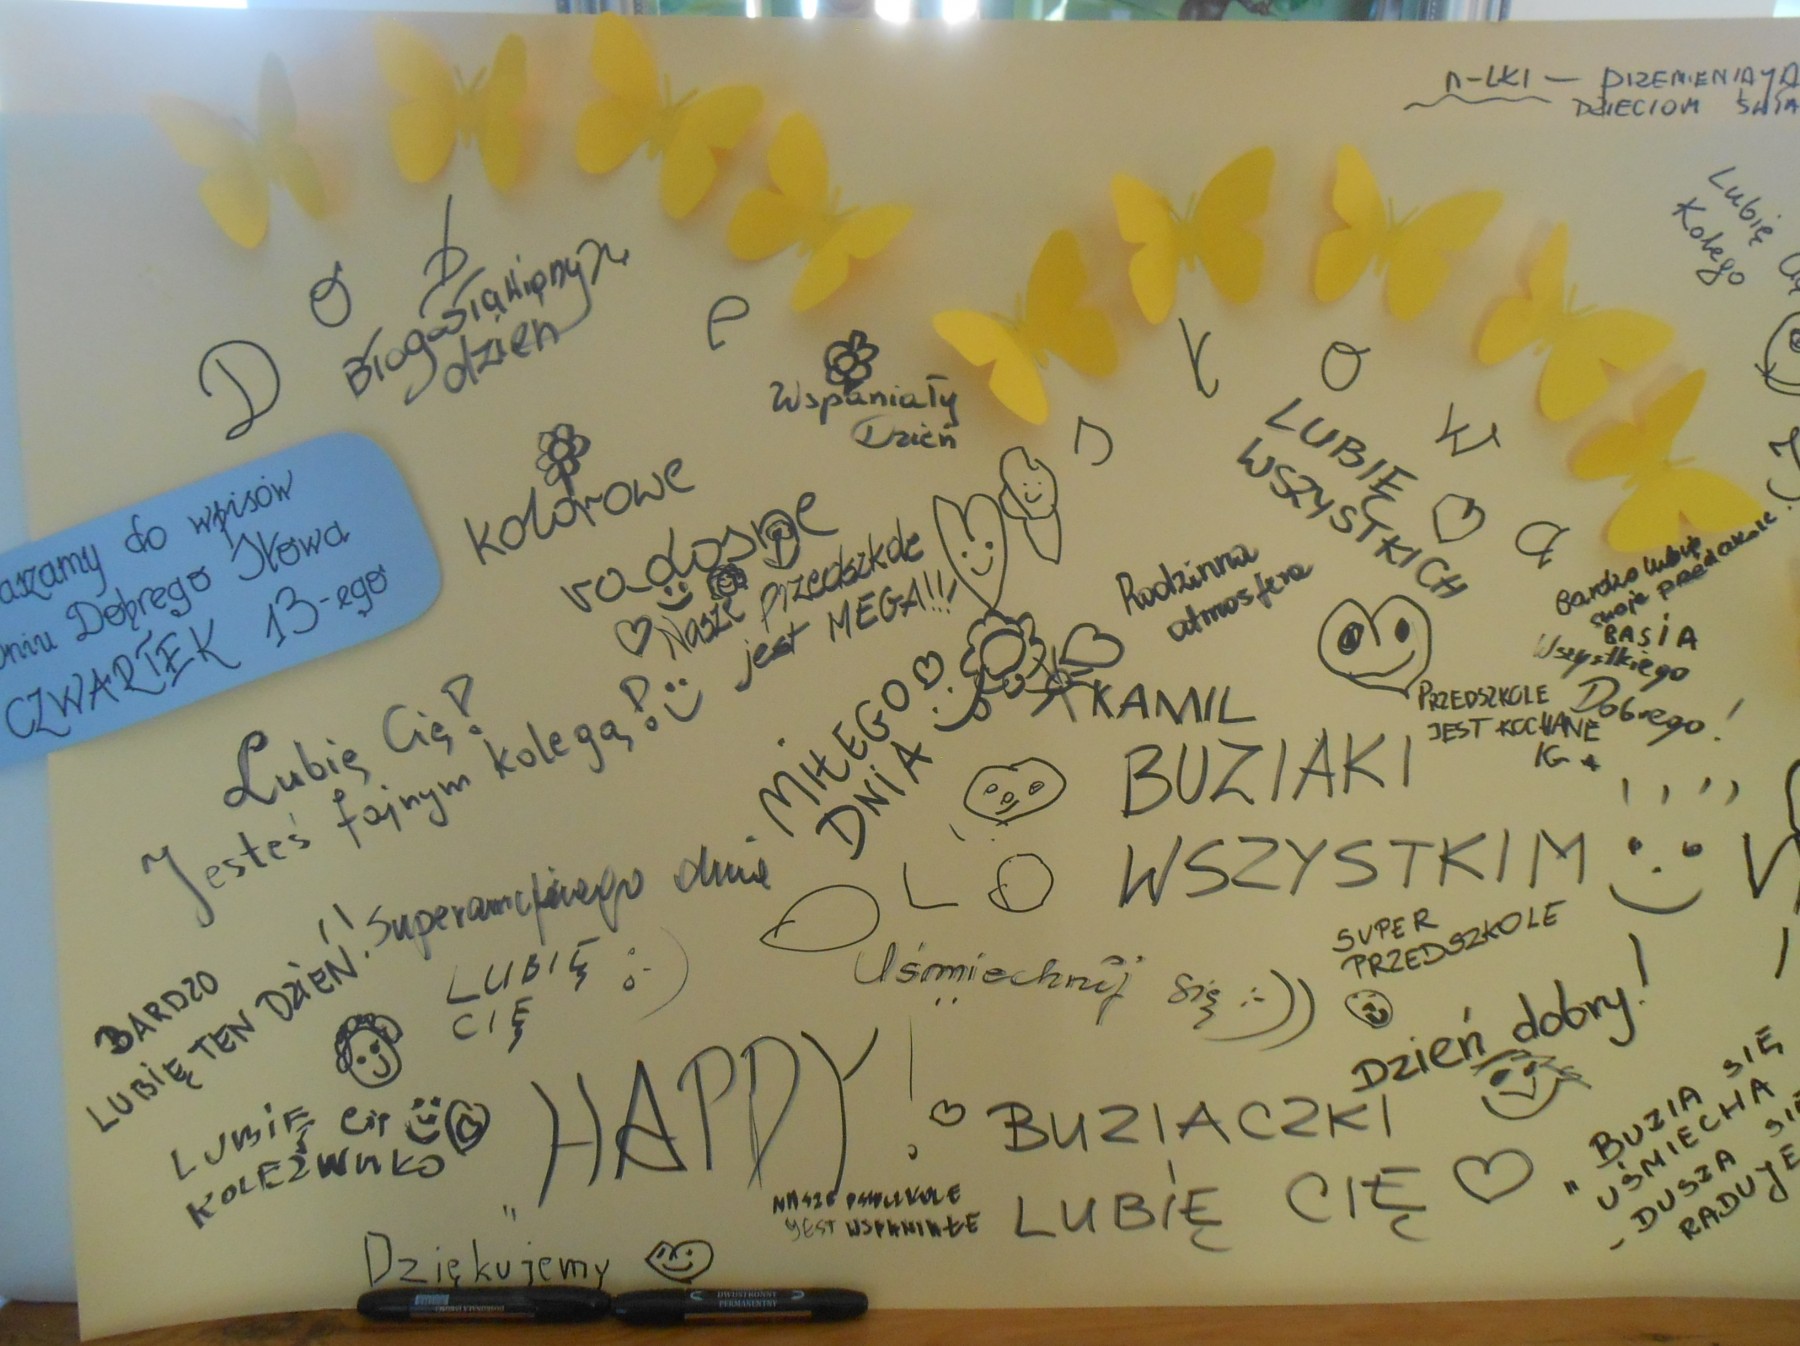 DZIECIOM
Lubię
Kolego
Dobre
słowa
Błogosławiony
dzień
Wspaniały
Dzień
LUBIĘ
WSZYSTKICH
do wpisów
Dniu Dobrego Słowa
CZWARTEK 13-ego
kolorowe
radosne
Nasze przedszkole
jest MEGA!!!
Rodzinna
atmosfera
Bardzo lubię
swoje przedszkole!
BASIA
Wszystkiego
Dobrego!
PRZEDSZKOLE
JEST KOCHANE
IG
Lubię Cię!
Jesteś fajnym kolegą!
MIŁEGO
DNIA
KAMIL
BUZIAKI
WSZYSTKIM
LO
BARDZO
LUBIĘ TEN DZIEŃ!!
dnia
LUBIĘ
CIĘ
Uśmiechnij się :-))
SUPER
PRZEDSZKOLE
Dzień dobry!
LUBIĘ Cię
HAPPY!
BUZIACZKI
LUBIĘ CIĘ
NASZE PRZEDSZKOLE
JEST WSPANIAŁE
"BUZIA SIĘ
UŚMIECHA
-DUSZA SIĘ
RADUJE
Dziękujemy
DWUSTRONNY
PERMANENTNY